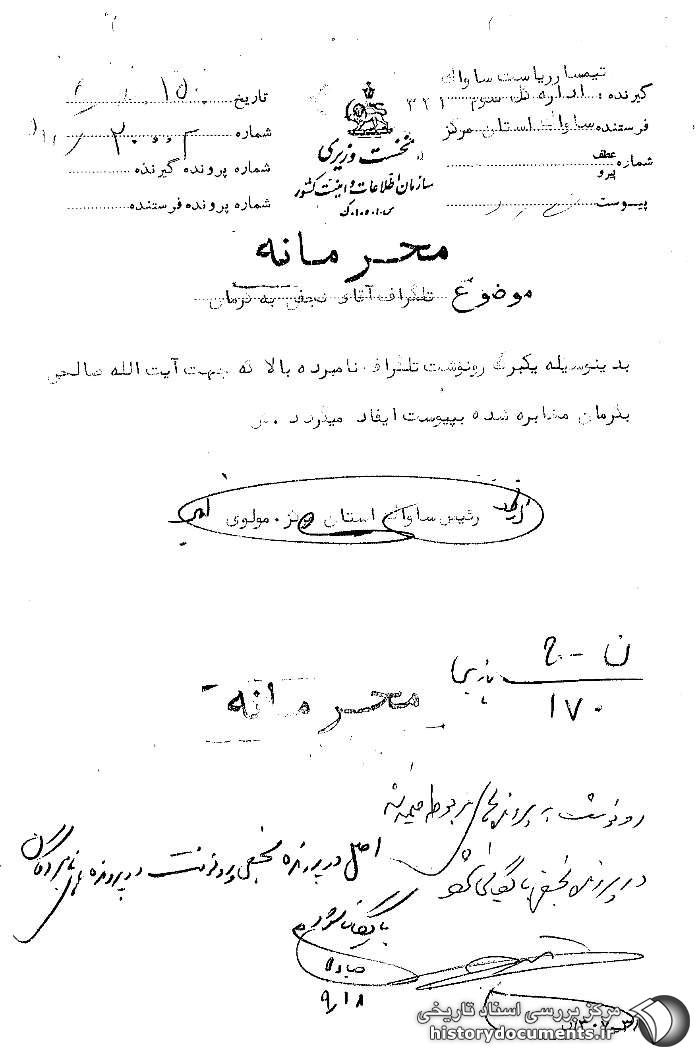 تیمسار ریاست ساواک
گیرنده : اداره کل سوم ۳۲۱
فرستنده ساواک استان مرکز
شماره عطف پیرو
پیوست
نخست وزیری
سازمان اطلاعات و امنیت کشور
س.ا.و.ا.ک
تاریخ
شماره
شماره پرونده گیرنده
شماره پرونده فرستنده
محرمانه
موضوع تلگراف آقای نجفی به کرمان
بدینوسیله یکبرگ رونوشت تلگراف نامبرده بالا که جهت آیت الله صالحی
بکرمان مخابره شده بپیوست ایفاد میگردد . س
رئیس ساواک استان مرکز . مولوی
ن - ح
بازیابی
۱۷۰
محرمانه
رونوشت به پرونده های مربوط ضمیمه شد
اصل در پرونده نجفی و رونوشت در پرونده های نامبردگان
در پرونده نجفی بایگانی شود
بایگانی شود
۹/۱۸
مرکز بررسی اسناد تاریخی
historydocuments.ir